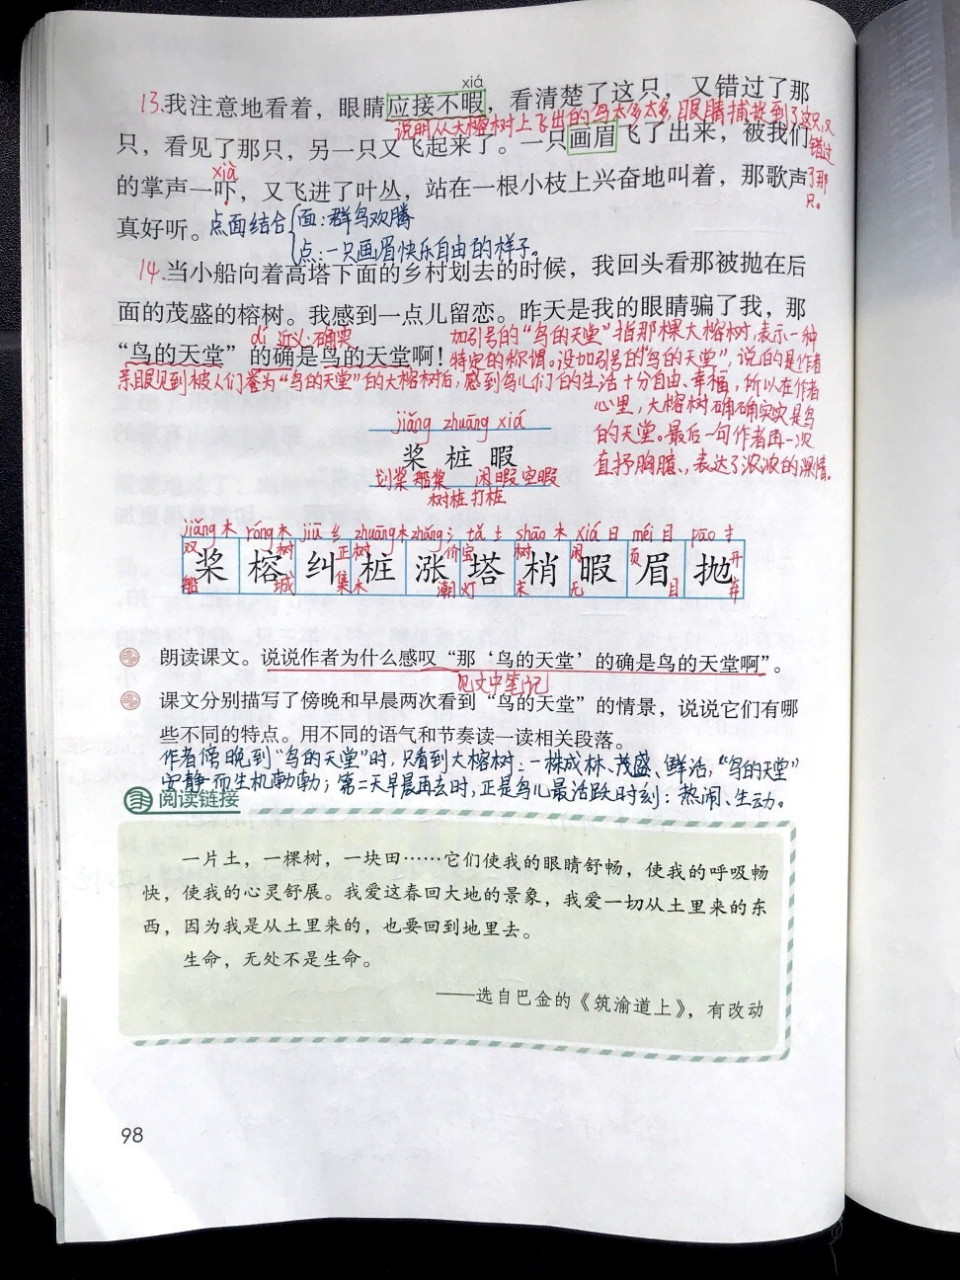 xiá
13.我注意地看着，眼睛应接不暇，看清楚了这只，又错过了那
说明从大榕树上飞出的鸟太多太多,眼睛捕捉到了这只,又错过了那只。
只，看见了那只，另一只又飞起来了。一只画眉飞了出来，被我们
xià
的掌声一吓，又飞进了叶丛，站在一根小枝上兴奋地叫着，那歌声
真好听。
点面结合
面：群鸟欢腾
点：一只画眉快乐自由的样子。
14.当小船向着高塔下面的乡村划去的时候，我回头看那被抛在后
面的茂盛的榕树。我感到一点儿留恋。昨天是我的眼睛骗了我，那
dí 近义：确实
“鸟的天堂”的确是鸟的天堂啊！
加引号的“鸟的天堂”指那棵大榕树，表示一种
特定的称谓。没加引号的“鸟的天堂”，说的是作者
亲眼见到被人们誉为“鸟的天堂”的大榕树后，感到鸟儿们的生活十分自由、幸福，所以在作者
心里，大榕树确确实实是鸟
的天堂。最后一句作者再一次
直抒胸臆、表达了浓浓的深情。
jiǎng zhuāng xiá
桨 桩 暇
划桨 船桨 闲暇 空暇
树桩 打桩
jiǎng木 róng木 jiū纟 zhuāng木 zhǎng氵 tǎ土 shāo木 xiá日 méi目 pāo扌
双 树 正 树 价 宝 树 闲 页 开
桨 榕 纠 桩 涨 塔 梢 暇 眉 抛
船 城 集 木 潮 灯 末 无 目 弃
朗读课文。说说作者为什么感叹“那‘鸟的天堂’的确是鸟的天堂啊”。
见文中笔记
课文分别描写了傍晚和早晨两次看到“鸟的天堂”的情景，说说它们有哪
些不同的特点。用不同的语气和节奏读一读相关段落。
作者傍晚到“鸟的天堂”时，只看到大榕树：一株成林、茂盛、鲜活，“鸟的天堂”
安静而生机勃勃；第二天早晨再去时，正是鸟儿最活跃时刻：热闹、生动。
阅读链接
一片土，一棵树，一块田……它们使我的眼睛舒畅，使我的呼吸畅
快，使我的心灵舒展。我爱这春回大地的景象，我爱一切从土里来的东
西，因为我是从土里来的，也要回到地里去。
生命，无处不是生命。
——选自巴金的《筑渝道上》，有改动
98